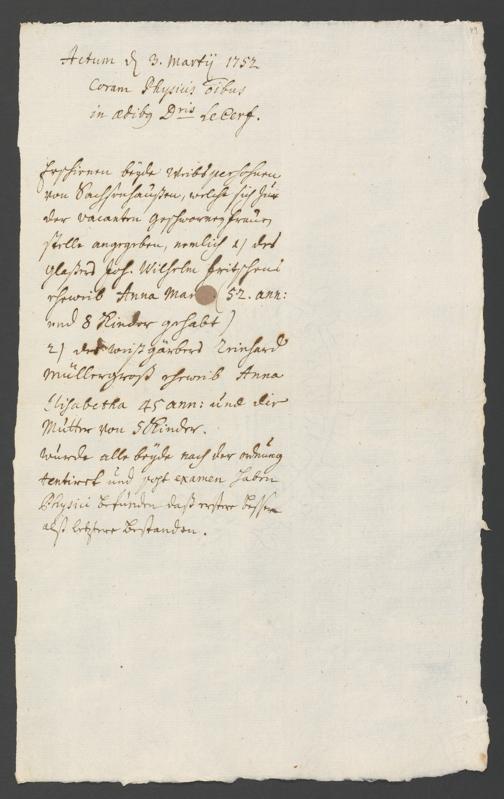 Actum d 3. Martij 1752
Coram Physicis oibus
in ædibg Dris LeCerf.
Erschienen beyde Weibspersohnen
von Sachsenhaußen, welche sich zur
der vacanten geschwornen frauen
stelle angegeben, nemlich 1) des
Glasers Joh. Wilhelm Fritschens
eheweib Anna Mar (52. ann:
und 8 Kinder gehabt)
2) des weißgärbers Reinhard
Müllergroß eheweib Anna
Elisabetha 45 ann: und die
Mutter von 5 Kinder.
Wurde alle beyde nach der ordnung
tentirt und post examen haben
Physici befunden daß erstere besser
alß letztere bestanden.